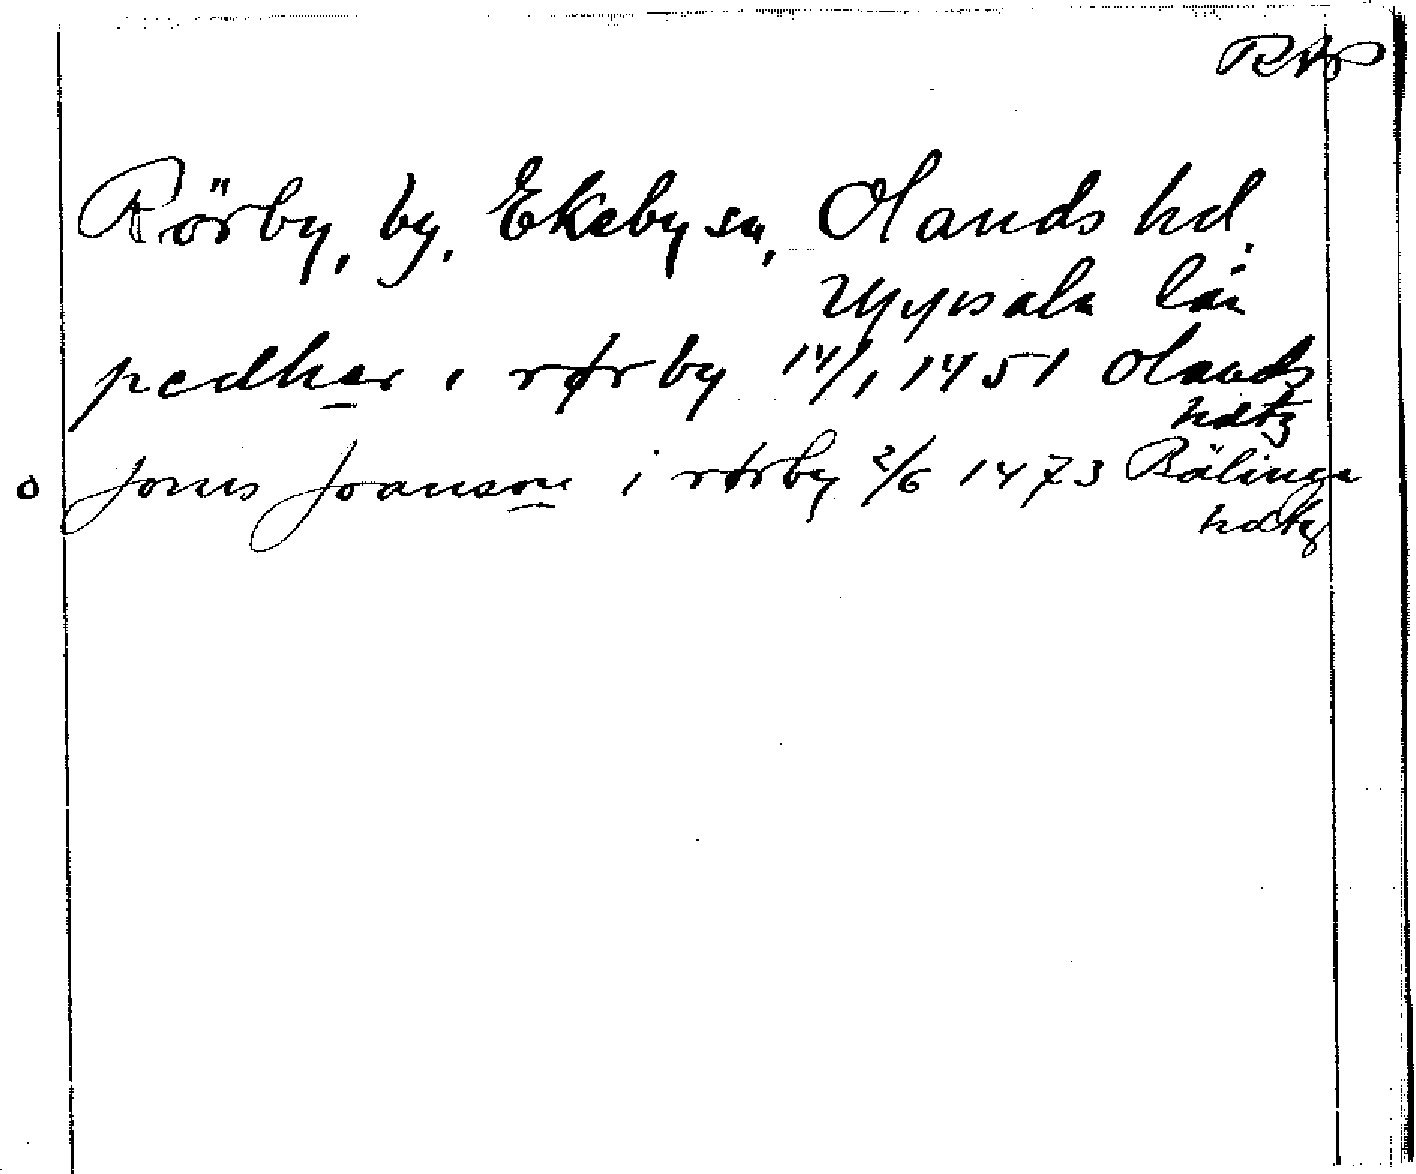 RAP
Rörby, by, Ekeby sn, Olands hd.
Uppsala län
pedher i rørby 14/1 1451 Olands
hdtg
o Jonis Joanson i rørby 2/6 1473 Bälinge
hdtg